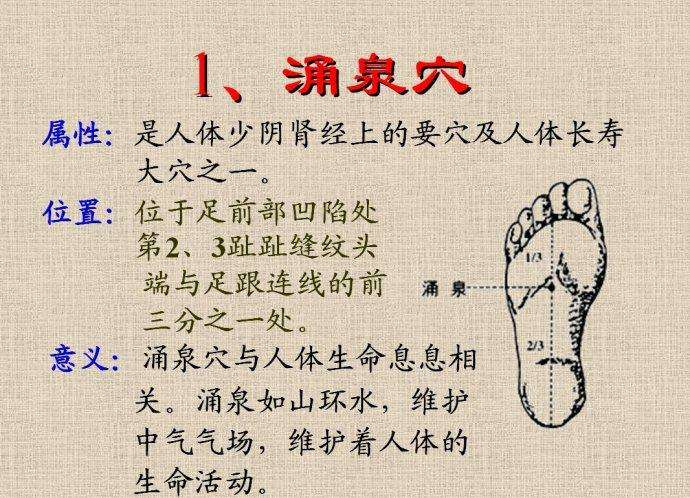 1、涌泉穴
属性：是人体少阴肾经上的要穴及人体长寿
大穴之一。
位置：位于足前部凹陷处
第2、3趾趾缝纹头
端与足跟连线的前
三分之一处。
1/3
涌泉
2/3
意义：涌泉穴与人体生命息息相
关。涌泉如山环水，维护
中气气场，维护着人体的
生命活动。